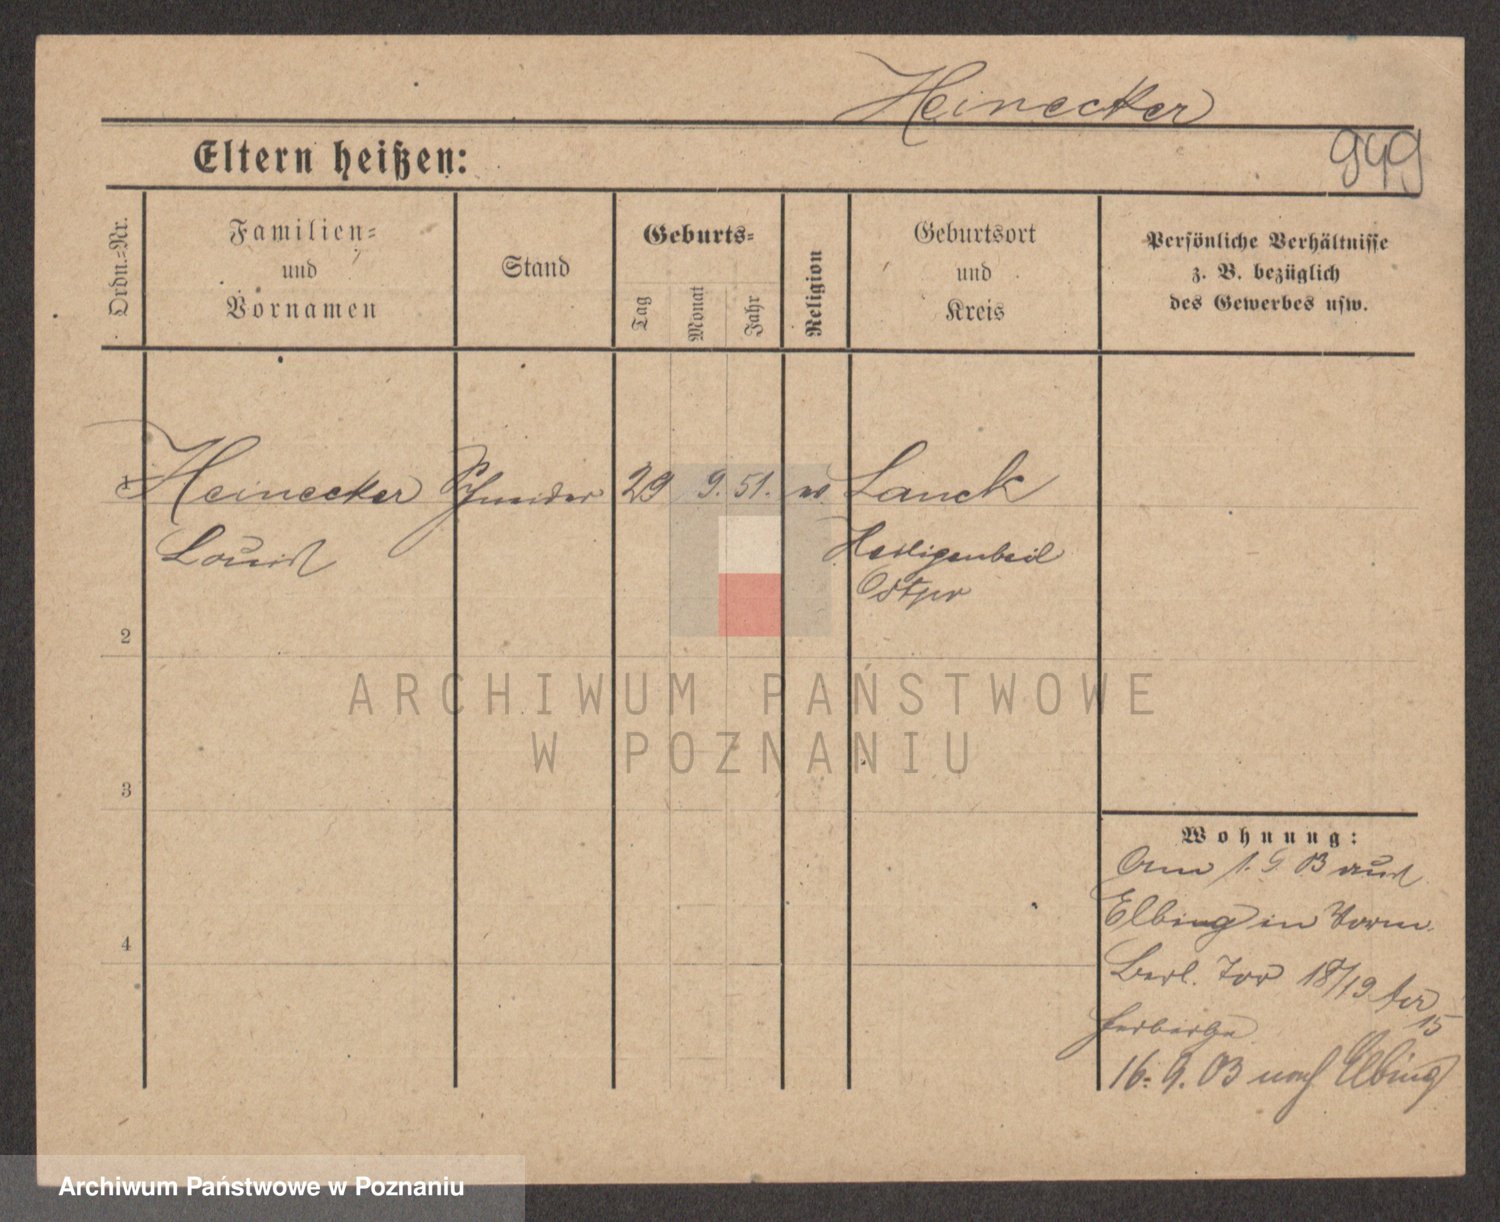 Heinecker
949
Eltern heißen:
Ordn.-Nr.
Familien-
und
Vornamen
Stand
Geburts-
Tag
Monat
Jahr
Religion
Geburtsort
und
Kreis
Persönliche Verhältnisse
z. B. bezüglich
des Gewerbes usw.
1 Heinecker Schneider 29 9. 51. Lanck
Louis
Heiligenbeil
Ostpr
2
3
4
Wohnung:
Am 1. 9 03 aus
Elbing in
Berl. Tor 18/19
15
Herberge
16. 9. 03 nach Elbing
ARCHIWUM PAŃSTWOWE
W POZNANIU
Archiwum Państwowe w Poznaniu